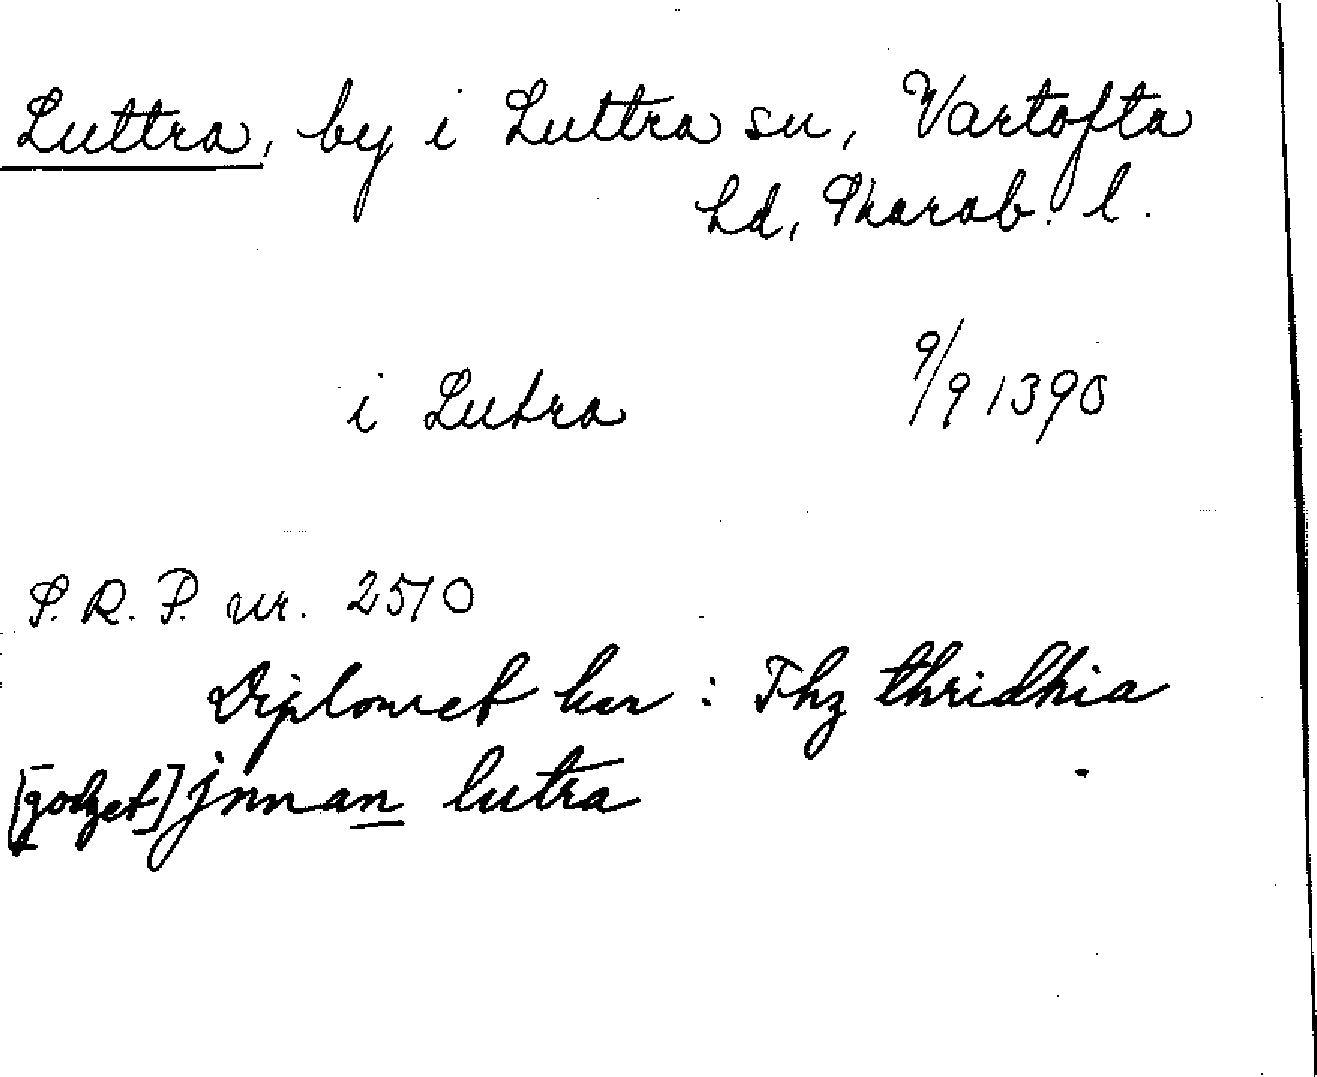 Luttra, by i Luttra sn, Vartofta
hd, Skarab. l.
i Lutra 9/9 1390
S.R.P. nr. 2510
Diplomet har: Thz thridhia
[godzet] jnnan lutra